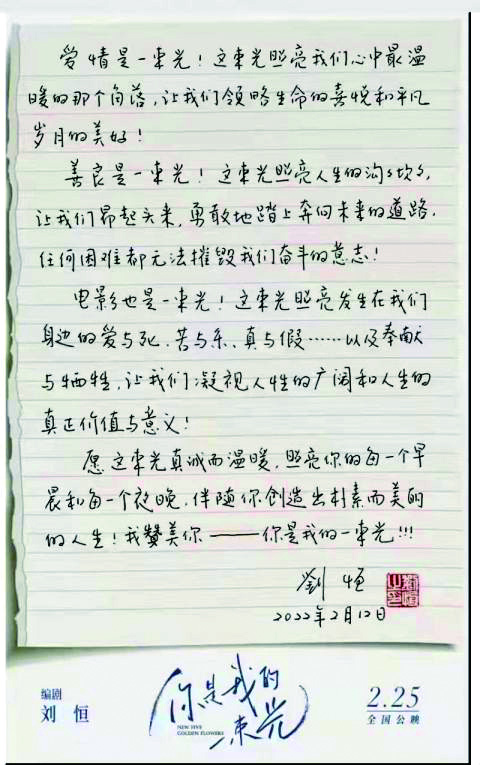 爱情是一束光！这束光照亮我们心中最温
暖的那个角落，让我们领略生命的喜悦和平凡
岁月的美好！
善良是一束光！这束光照亮人生的沟沟坎坎，
让我们昂起头来，勇敢地踏上奔向未来的道路，
任何困难都无法摧毁我们奋斗的意志！
电影也是一束光！这束光照亮发生在我们
身边的爱与死、苦与乐、真与假……以及奉献
与牺牲，让我们凝视人性的广阔和人生的
真正价值与意义！
愿这束光真诚而温暖，照亮你的每一个早
晨和每一个夜晚，伴随你创造出朴素而美的
的人生！我赞美你——你是我的一束光!!!
劉恒
2022年2月12日
编剧
刘恒
你是我的一束光
NEW FIVE
GOLDEN FLOWERS
2.25
全国公映